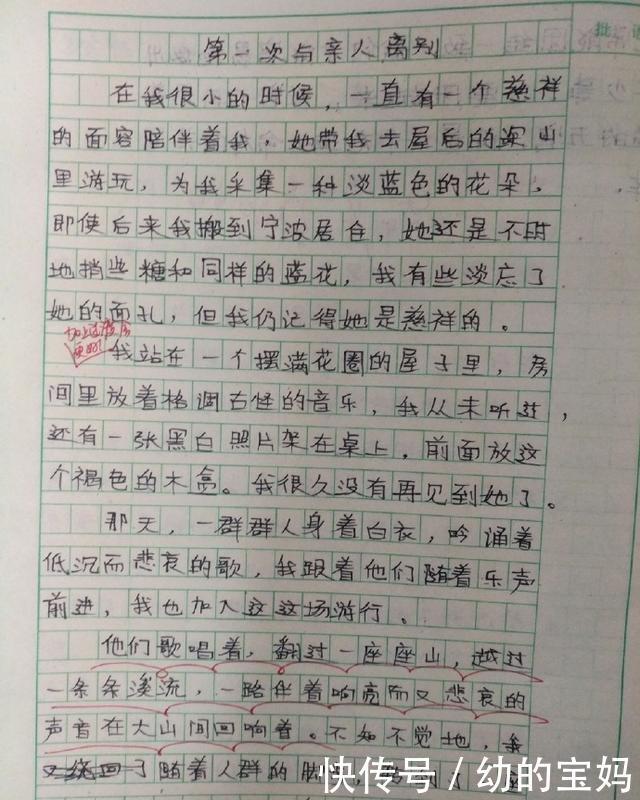 批
第一次与亲人离别
在我很小的时候，一直有一个慈祥
的面容陪伴着我，她带我去屋后的深山
里游玩，为我采集一种淡蓝色的花朵，
即使后来我搬到宁波居住，她还是不时
地捎些糖和同样的蓝花，我有些淡忘了
她的面孔，但我仍记得她是慈祥的。
我站在一个摆满花圈的屋子里，房
间里放着格调古怪的音乐，我从未听过，
还有一张黑白照片架在桌上，前面放这
个褐色的木盒。我很久没有再见到她了。
那天，一群群人身着白衣，吟诵着
低沉而悲哀的歌，我跟着他们随着乐声
前进，我也加入这这场游行。
他们歌唱着，翻过一座座山，越过
一条条溪流，一路伴着响亮而又悲哀的
声音在大山间回响着。不知不觉地，我
了随着人群的
快传号 / 幼的宝妈